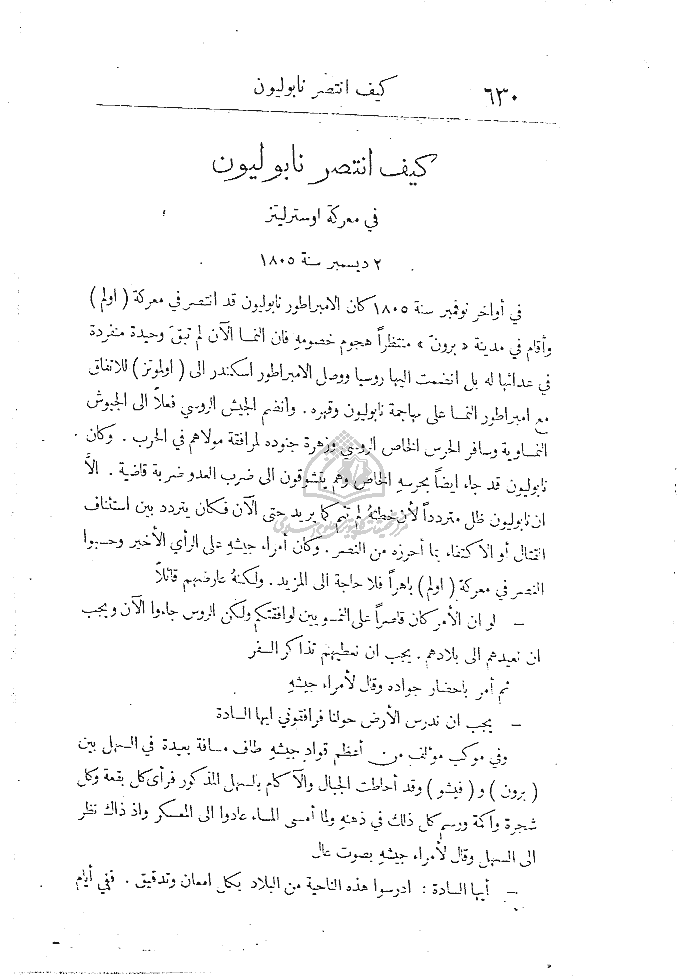 ٦٣٠ كيف انتصر نابوليون
كيف انتصر نابوليون
في معركة اوسترليتز
٢ ديسمبر سنة ١٨٠٥
في أواخر نوفمبر سنة ١٨٠٥ كان الامبراطور نابوليون قد انتصر في معركة ( اولم )
وأقام في مدينة « برون » منتظراً هجوم خصومهِ فان النمسا الآن لم تبقَ وحيدة منفردة
في عدائها له بل انضمت اليها روسيا ووصل الامبراطور اسكندر الى ( اولموتز ) للاتفاق
مع امبراطور النمسا على مهاجمة نابوليون وقهره . وانضم الجيش الروسي فعلاً الى الجيوش
النمساوية وسافر الحرس الخاص الروسي وزهرة جنوده لمرافقة مولاهم في الحرب . وكان
نابوليون قد جاء ايضاً بحرسهِ الخاص وهم يتشوقون الى ضرب العدو ضربة قاضية . الاَّ
ان نابوليون ظل متردداً لأن خطتهُ لم تتم كما يريد حتى الآن فكان يتردد بين استئناف
القتال أو الاكتفاء بما أحرزه من النصر . وكان أمراء جيشهِ على الرأي الأخير وحسبوا
النصر في معركة ( اولم ) باهراً فلا حاجة الى المزيد . ولكنهُ عارضهم قائلاً
– لو ان الأمر كان قاصراً على النمسويين لوافقتكم ولكن الروس جاءوا الآن ويجب
ان نعيدهم الى بلادهم . يجب ان نعطيهم تذاكر السفر
ثم أمر باحضار جواده وقال لأمراء جيشهِ
– يجب ان ندرس الأرض حولنا فرافقوني ايها السادة
وفي موكب مؤلف من أعظم قواد جيشهِ طاف مسافة بعيدة في السهل بين
( برون ) و ( فيشو ) وقد أحاطت الجبال والآكام بالسهل المذكور فرأى كل بقعة وكل
شجرة وأكمة ورسم كل ذلك في ذهنهِ ولما أمسى المساء عادوا الى المعسكر واذ ذاك نظر
الى السهل وقال لأمراء جيشهِ بصوت عال
– أيها السادة : ادرسوا هذه الناحية من البلاد بكل امعان وتدقيق . ففي أيام